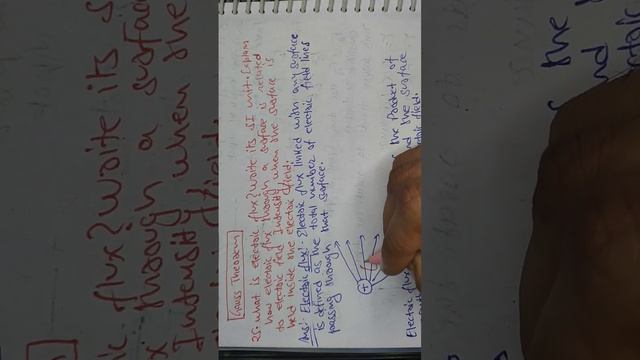 Gauss Theorem
25. What is electric flux? Write its SI unit. Explain
how electric flux through a surface is related
to electric field Intensity when the surface is
held inside the electric field.
Ans:- Electric flux:- Electric flux linked with any surface
is defined as the total number of electric field lines
passing through that surface.
+
Electric flux
the Product of
and the surface
electric field.